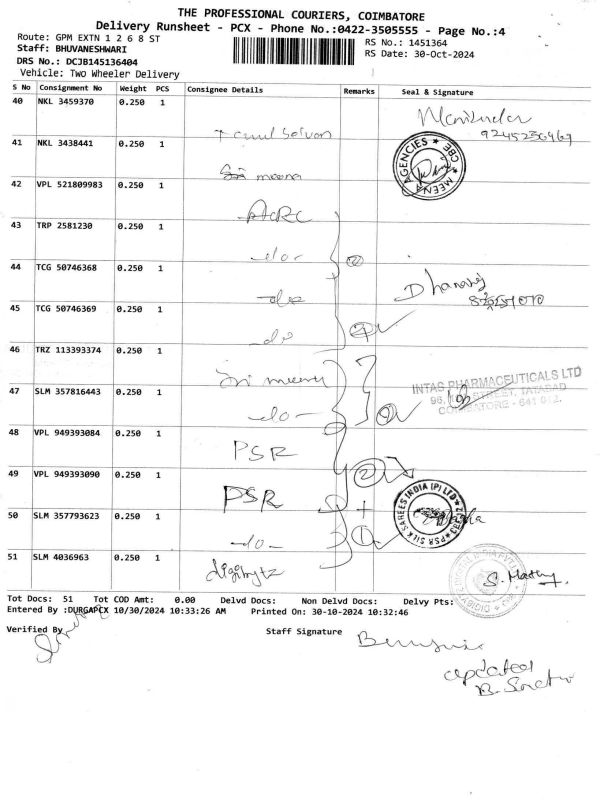 THE PROFESSIONAL COURIERS, COIMBATORE
Delivery Runsheet - PCX - Phone No.:0422-3505555 - Page No.:4
Route: GPM EXTN 1 2 6 8 ST
RS No.: 1451364
Staff: BHUVANESHWARI
RS Date: 30-Oct-2024
DRS No.: DCJB145136404
Vehicle: Two Wheeler Delivery
S No Consignment No Weight PCS Consignee Details Remarks Seal & Signature
40 NKL 3459370 0.250 1
41 NKL 3438441 0.250 1 meena
MEENA AGENCIES CBE
42 VPL 521809983 0.250 1 ACRC
43 TRP 2581230 0.250 1 -do-
44 TCG 50746368 0.250 1 -do- Dhanraj
45 TCG 50746369 0.250 1 -do
46 TRZ 113393374 0.250 1 Sri meena
47 SLM 357816443 0.250 1 -do-
INTAS PHARMACEUTICALS LTD
STREET, TATABAD
COIMBATORE - 641 012.
48 VPL 949393084 0.250 1 PSR
49 VPL 949393090 0.250 1 PSR 2
PSR SILK SAREES INDIA (P) LTD
50 SLM 357793623 0.250 1 -do- 1
51 SLM 4036963 0.250 1 S. Mathy.
Tot Docs: 51 Tot COD Amt: 0.00 Delvd Docs: Non Delvd Docs: Delvy Pts:
Entered By :DURGAPCX 10/30/2024 10:33:26 AM Printed On: 30-10-2024 10:32:46
Verified By
Staff Signature
updated